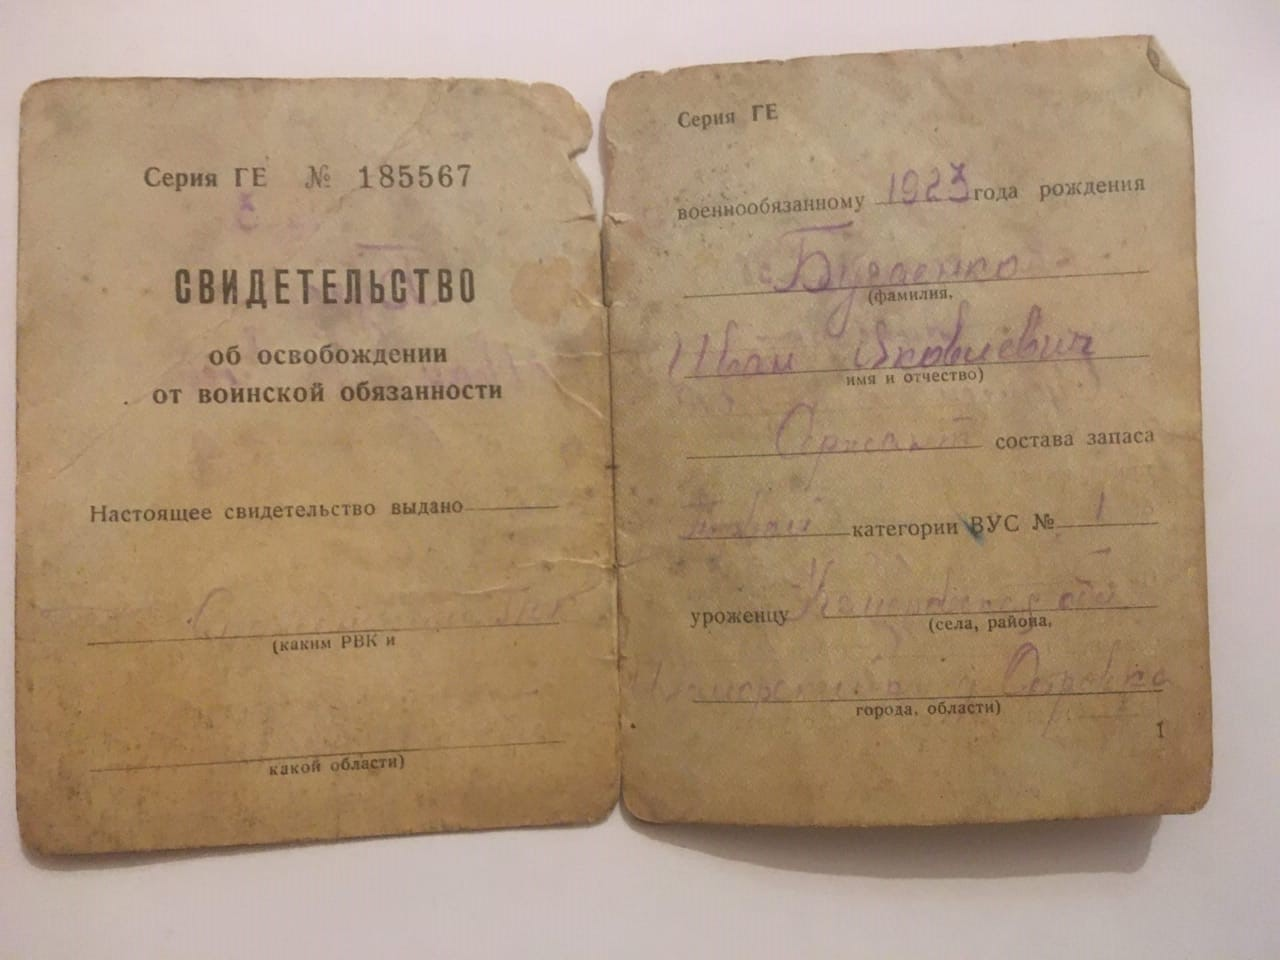 Серия ГЕ № 185567
СВИДЕТЕЛЬСТВО
об освобождении
от воинской обязанности
Настоящее свидетельство выдано
(каким РВК и
какой области)
Серия ГЕ
военнообязанному 1923 года рождения
(фамилия,
Иван Яковлевич
имя и отчество)
Сержант состава запаса
категории ВУС № 1
уроженцу
(села, района,
города, области)
1